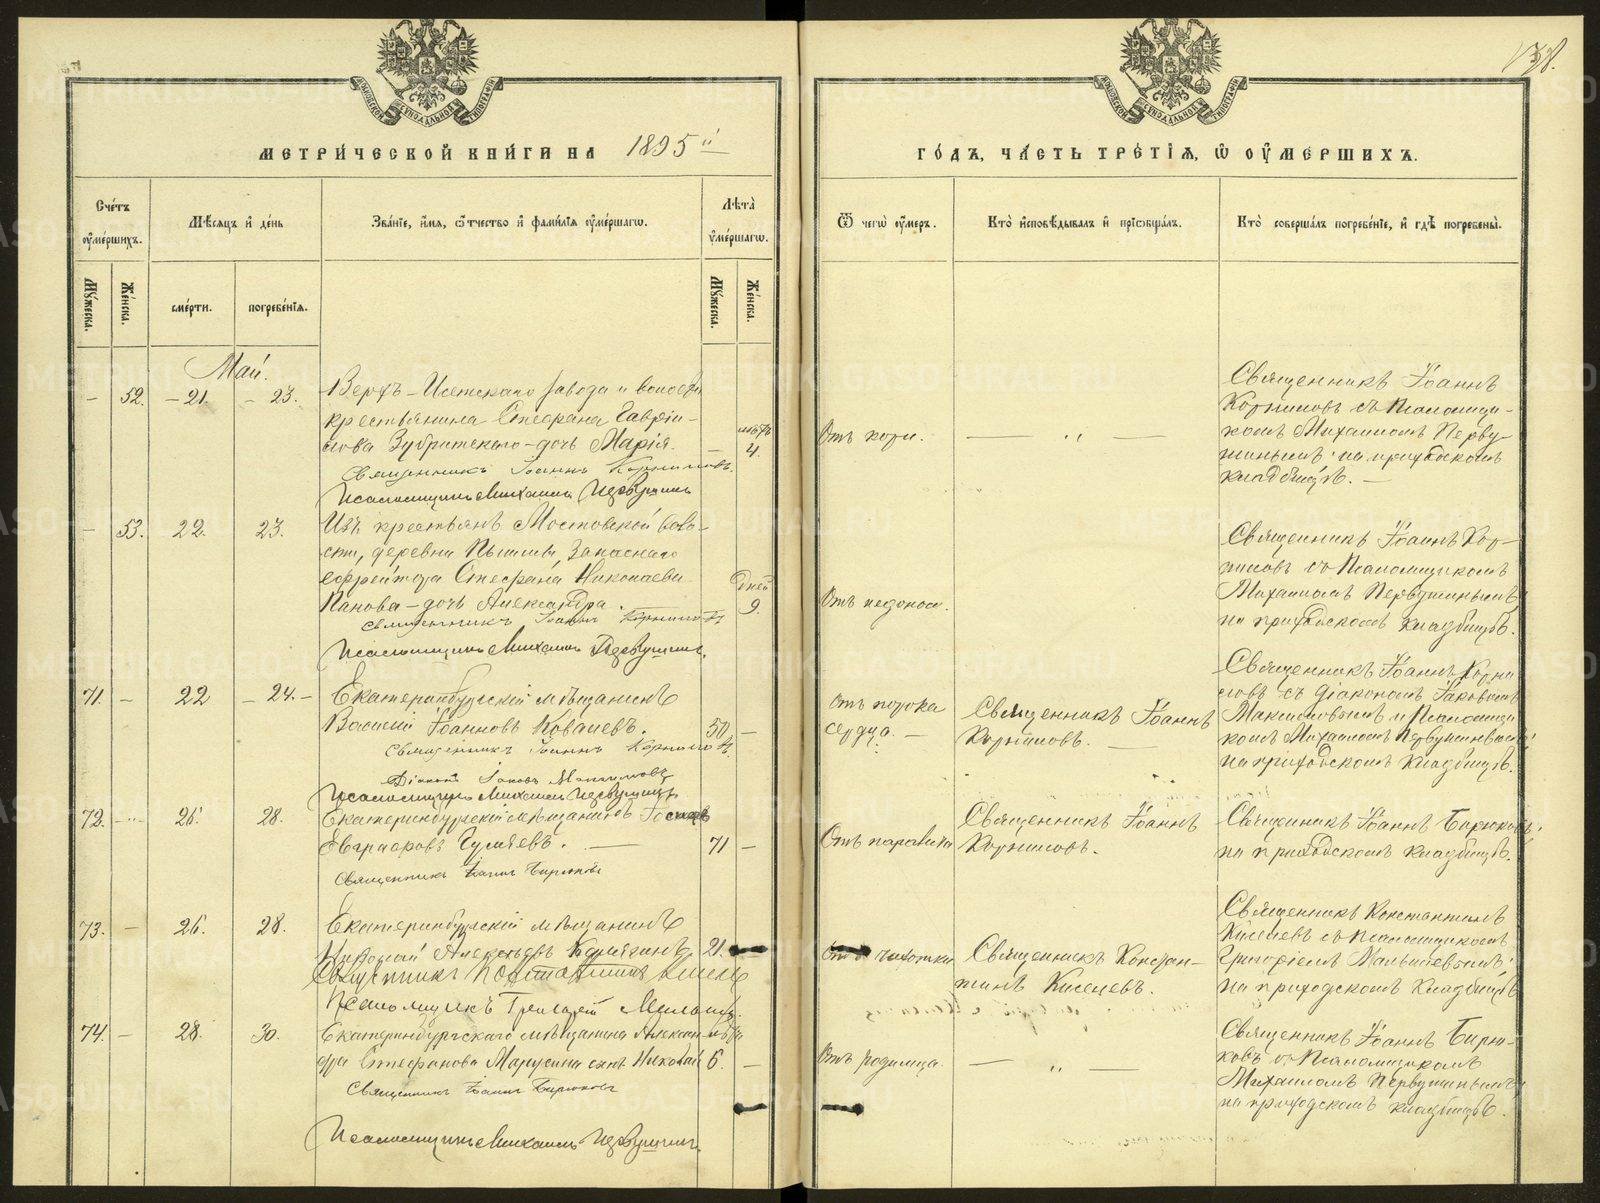 138.
МОСКОВСКОЙ СѴНОДАЛЬНОЙ ТИПОГРАФІИ
МОСКОВСКОЙ СѴНОДАЛЬНОЙ ТИПОГРАФІИ
МЕТРИ́ЧЕСКОЙ КНИ́ГИ НА 1895й
ГО́ДЪ, ЧА́СТЬ ТРЕ́ТІЯ, Ѿ ОУ҆МЕ́РШИХЪ.
Сче́тъ оу҆ме́ршихъ.
Мѣ́сяцъ и҆ де́нь
Зва́ніе, и҆́мя, ѻ҆́тчество и҆ фами́лія оу҆ме́ршагѡ.
Лѣ́та оу҆ме́ршагѡ.
Ѿ чегѡ̀ оу҆́меръ.
Кто̀ и҆сповѣ́дывалъ и҆ прїѡбща́лъ.
Кто̀ соверша́лъ погребе́ніе, и҆ гдѣ̀ погребены̀.
Мꙋ́жеска.
Же́нска.
сме́рти.
погребе́нія.
Мꙋ́жеска.
Же́нска.
Май.
– 52. – 21. – 23.
Верхъ-Исетскаго завода и волости
крестьянина Стефана Гаврiи-
лова Зубритскаго – дочь Марія. –
4.
Священникъ Іоаннъ Корниловъ.
Псаломщикъ Михаилъ Первушинъ
Отъ кори.
— „ —
Священникъ Іоаннъ
Корниловъ съ Псаломщи-
комъ Михаиломъ Перву-
шинымъ на приходскомъ
кладбищѣ. –
– 53. 22. 23.
Изъ крестьянъ Мостовской воло-
сти, деревни Пышмы Запаснаго
ефрейтора Стефана Николаева
Панова – дочь Александра.
Дней
9.
Священникъ Іоаннъ Корниловъ
Псаломщикъ Михаилъ Первушинъ.
Отъ недонос.
Священникъ Іоаннъ Кор-
ниловъ съ Псаломщикомъ
Михаиломъ Первушинымъ
на приходскомъ кладбищѣ.
71. – 22 – 24. –
Екатеринбургскій мѣщанинъ
Василій Іоанновъ Ковалевъ.
50 –
Священникъ Іоаннъ Корниловъ
Діаконъ Іаковъ Максимовъ
Псаломщикъ Михаилъ Первушинъ
Отъ порока
сердца. –
Священникъ Іоаннъ
Корниловъ.
Священникъ Іоаннъ Корни
ловъ съ діакономъ Іаковомъ
Максимовымъ и Псаломщи
комъ Михаиломъ Первушинымъ
на приходскомъ кладбищѣ.
72. 26. 28.
Екатеринбургскій мѣщанинъ
Евграфовъ
71 –
Священникъ Іоаннъ Бирюковъ
Отъ паралича
Священникъ Іоаннъ
Корниловъ.
Священникъ Іоаннъ Бирюковъ.
на приходскомъ кладбищѣ.
73. – 26. 28.
Екатеринбургскій мѣщанинъ
Николай Алексѣевъ
21.
Священникъ Константинъ Киселевъ
Псаломщикъ Григорій
Отъ чахотки
Священникъ Констан-
тинъ Киселевъ.
Священникъ Константинъ
Киселевъ съ Псаломщикомъ
Григоріемъ Малышевымъ
на приходскомъ кладбищѣ
74. – 28. 30.
Екатеринбургскаго мѣщанина Алексан-
дра Стефанова сынъ Николай
6. –
Священникъ Іоаннъ Бирюковъ
Псаломщикъ Михаилъ Первушинъ.
Отъ родимца.
— „ —
Священникъ Іоаннъ Бирю-
ковъ съ Псаломщикомъ
Михаиломъ Первушинымъ
на приходскомъ кладбищѣ.